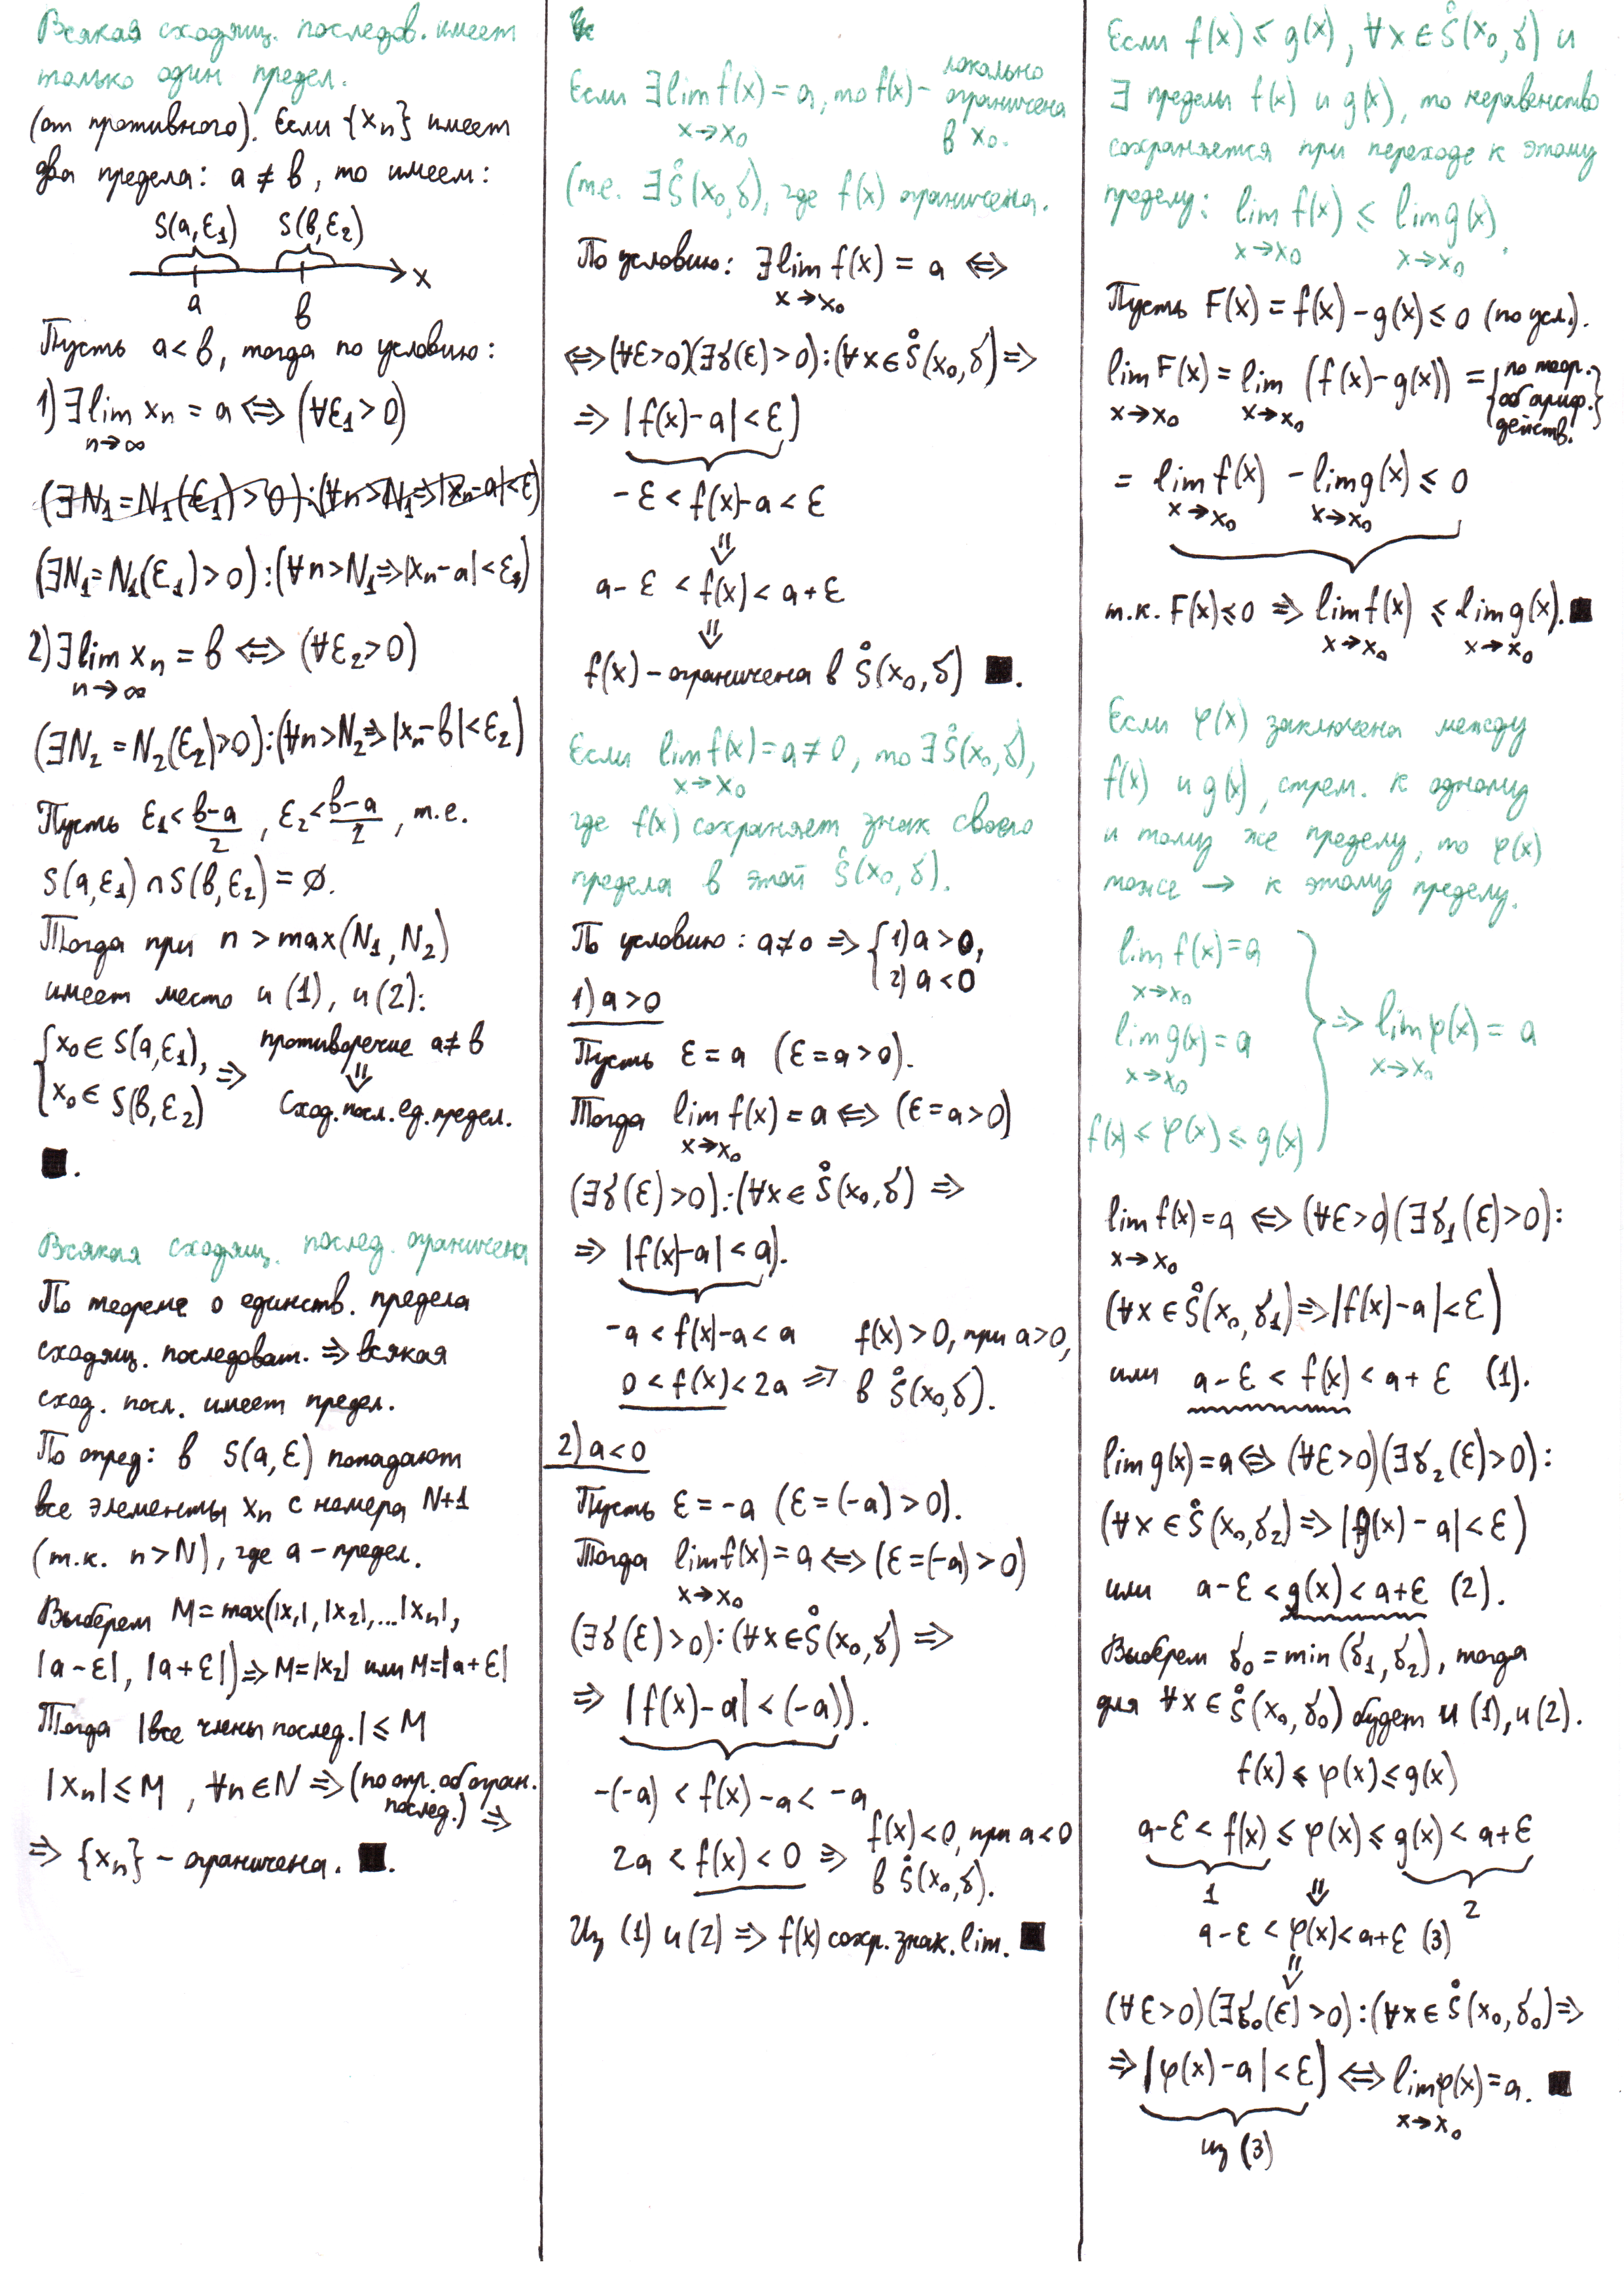 Всякая сходящ. последов. имеет
только один предел.
(от противного). Если {xₙ} имеет
два предела: a ≠ b, то имеем:
S(a,ε₁) S(b,ε₂)
x
a b
Пусть a < b, тогда по условию:
1) ∃ lim xₙ = a ⇔ (∀ε₁ > 0)
n→∞
(∃N₁ = N₁(ε₁) > 0):(∀n > N₁ ⇒ |xₙ - a| < ε)
(∃N₁ = N₁(ε₁) > 0):(∀n > N₁ ⇒ |xₙ - a| < ε₁)
2) ∃ lim xₙ = b ⇔ (∀ε₂ > 0)
n→∞
(∃N₂ = N₂(ε₂) > 0):(∀n > N₂ ⇒ |xₙ - b| < ε₂)
Пусть ε₁ < (b-a)/2, ε₂ < (b-a)/2, т.е.
S(a,ε₁) ∩ S(b,ε₂) = ∅.
Тогда при n > max(N₁, N₂)
имеет место и (1), и (2):
{x₀ ∈ S(a,ε₁), противоречие a ≠ b
x₀ ∈ S(b,ε₂) ⇒ ⇓
Сход. посл. ед. предел.
■.
Всякая сходящ. послед. ограничена
По теореме о единств. предела
сходящ. последоват. ⇒ всякая
сход. посл. имеет предел.
По опред: в S(a, ε) попадают
все элементы xₙ с номера N+1
(т.к. n > N), где a - предел.
Выберем M = max(|x₁|, |x₂|, ...|xₙ|,
|a - ε|, |a + ε|) ⇒ M = |x₂| или M = |a + ε|
Тогда |все члены послед.| ≤ M
|xₙ| ≤ M, ∀n ∈ N ⇒ (по опр. об огран.
послед.) ⇒
⇒ {xₙ} - ограничена. ■.
Если ∃ lim f(x) = a, то f(x) - локально ограничена
x→x₀ в x₀.
(т.е. ∃ S̊(x₀, δ), где f(x) ограничена.
По условию: ∃ lim f(x) = a ⇔
x→x₀
⇔ (∀ε > 0)(∃δ(ε) > 0):(∀x ∈ S̊(x₀, δ) ⇒
⇒ |f(x) - a| < ε)
-ε < f(x) - a < ε
⇓
a - ε < f(x) < a + ε
⇓
f(x) - ограничена в S̊(x₀, δ) ■.
Если lim f(x) = a ≠ 0, то ∃ S̊(x₀, δ),
x→x₀
где f(x) сохраняет знак своего
предела в этой S̊(x₀, δ).
По условию: a ≠ 0 ⇒ {1) a > 0,
2) a < 0
1) a > 0
Пусть ε = a (ε = a > 0).
Тогда lim f(x) = a ⇔ (ε = a > 0)
x→x₀
(∃δ(ε) > 0):(∀x ∈ S̊(x₀, δ) ⇒
⇒ |f(x) - a| < a).
-a < f(x) - a < a f(x) > 0, при a > 0,
0 < f(x) < 2a ⇒ в S̊(x₀, δ).
2) a < 0
Пусть ε = -a (ε = (-a) > 0).
Тогда lim f(x) = a ⇔ (ε = (-a) > 0)
x→x₀
(∃δ(ε) > 0):(∀x ∈ S̊(x₀, δ) ⇒
⇒ |f(x) - a| < (-a)).
-(-a) < f(x) - a < -a
f(x) < 0, при a < 0
2a < f(x) < 0 ⇒ в S̊(x₀, δ).
Из (1) и (2) ⇒ f(x) сохр. знак. lim. ■
Если f(x) ≤ g(x), ∀x ∈ S̊(x₀, δ) и
∃ пределы f(x) и g(x), то неравенство
сохраняется при переходе к этому
пределу: lim f(x) ≤ lim g(x).
x→x₀ x→x₀
Пусть F(x) = f(x) - g(x) ≤ 0 (по усл.).
lim F(x) = lim (f(x) - g(x)) = {по теор. об ариф. действ.}
x→x₀ x→x₀
= lim f(x) - lim g(x) ≤ 0
x→x₀ x→x₀
т.к. F(x) ≤ 0 ⇒ lim f(x) ≤ lim g(x). ■
x→x₀ x→x₀
Если φ(x) заключена между
f(x) и g(x), стрем. к одному
и тому же пределу, то φ(x)
тоже → к этому пределу.
lim f(x) = a
x→x₀
lim g(x) = a ⇒ lim φ(x) = a
x→x₀ x→x₀
f(x) ≤ φ(x) ≤ g(x)
lim f(x) = a ⇔ (∀ε > 0)(∃δ₁(ε) > 0):
x→x₀
(∀x ∈ S̊(x₀, δ₁) ⇒ |f(x) - a| < ε)
или a - ε < f(x) < a + ε (1).
lim g(x) = a ⇔ (∀ε > 0)(∃δ₂(ε) > 0):
(∀x ∈ S̊(x₀, δ₂) ⇒ |g(x) - a| < ε)
или a - ε < g(x) < a + ε (2).
Выберем δ₀ = min(δ₁, δ₂), тогда
для ∀x ∈ S̊(x₀, δ₀) будет и (1), и (2).
f(x) ≤ φ(x) ≤ g(x)
a - ε < f(x) ≤ φ(x) ≤ g(x) < a + ε
1 ⇓ 2
a - ε < φ(x) < a + ε (3)
⇓
(∀ε > 0)(∃δ₀(ε) > 0):(∀x ∈ S̊(x₀, δ₀) ⇒
⇒ |φ(x) - a| < ε) ⇔ lim φ(x) = a. ■
x→x₀
из (3)